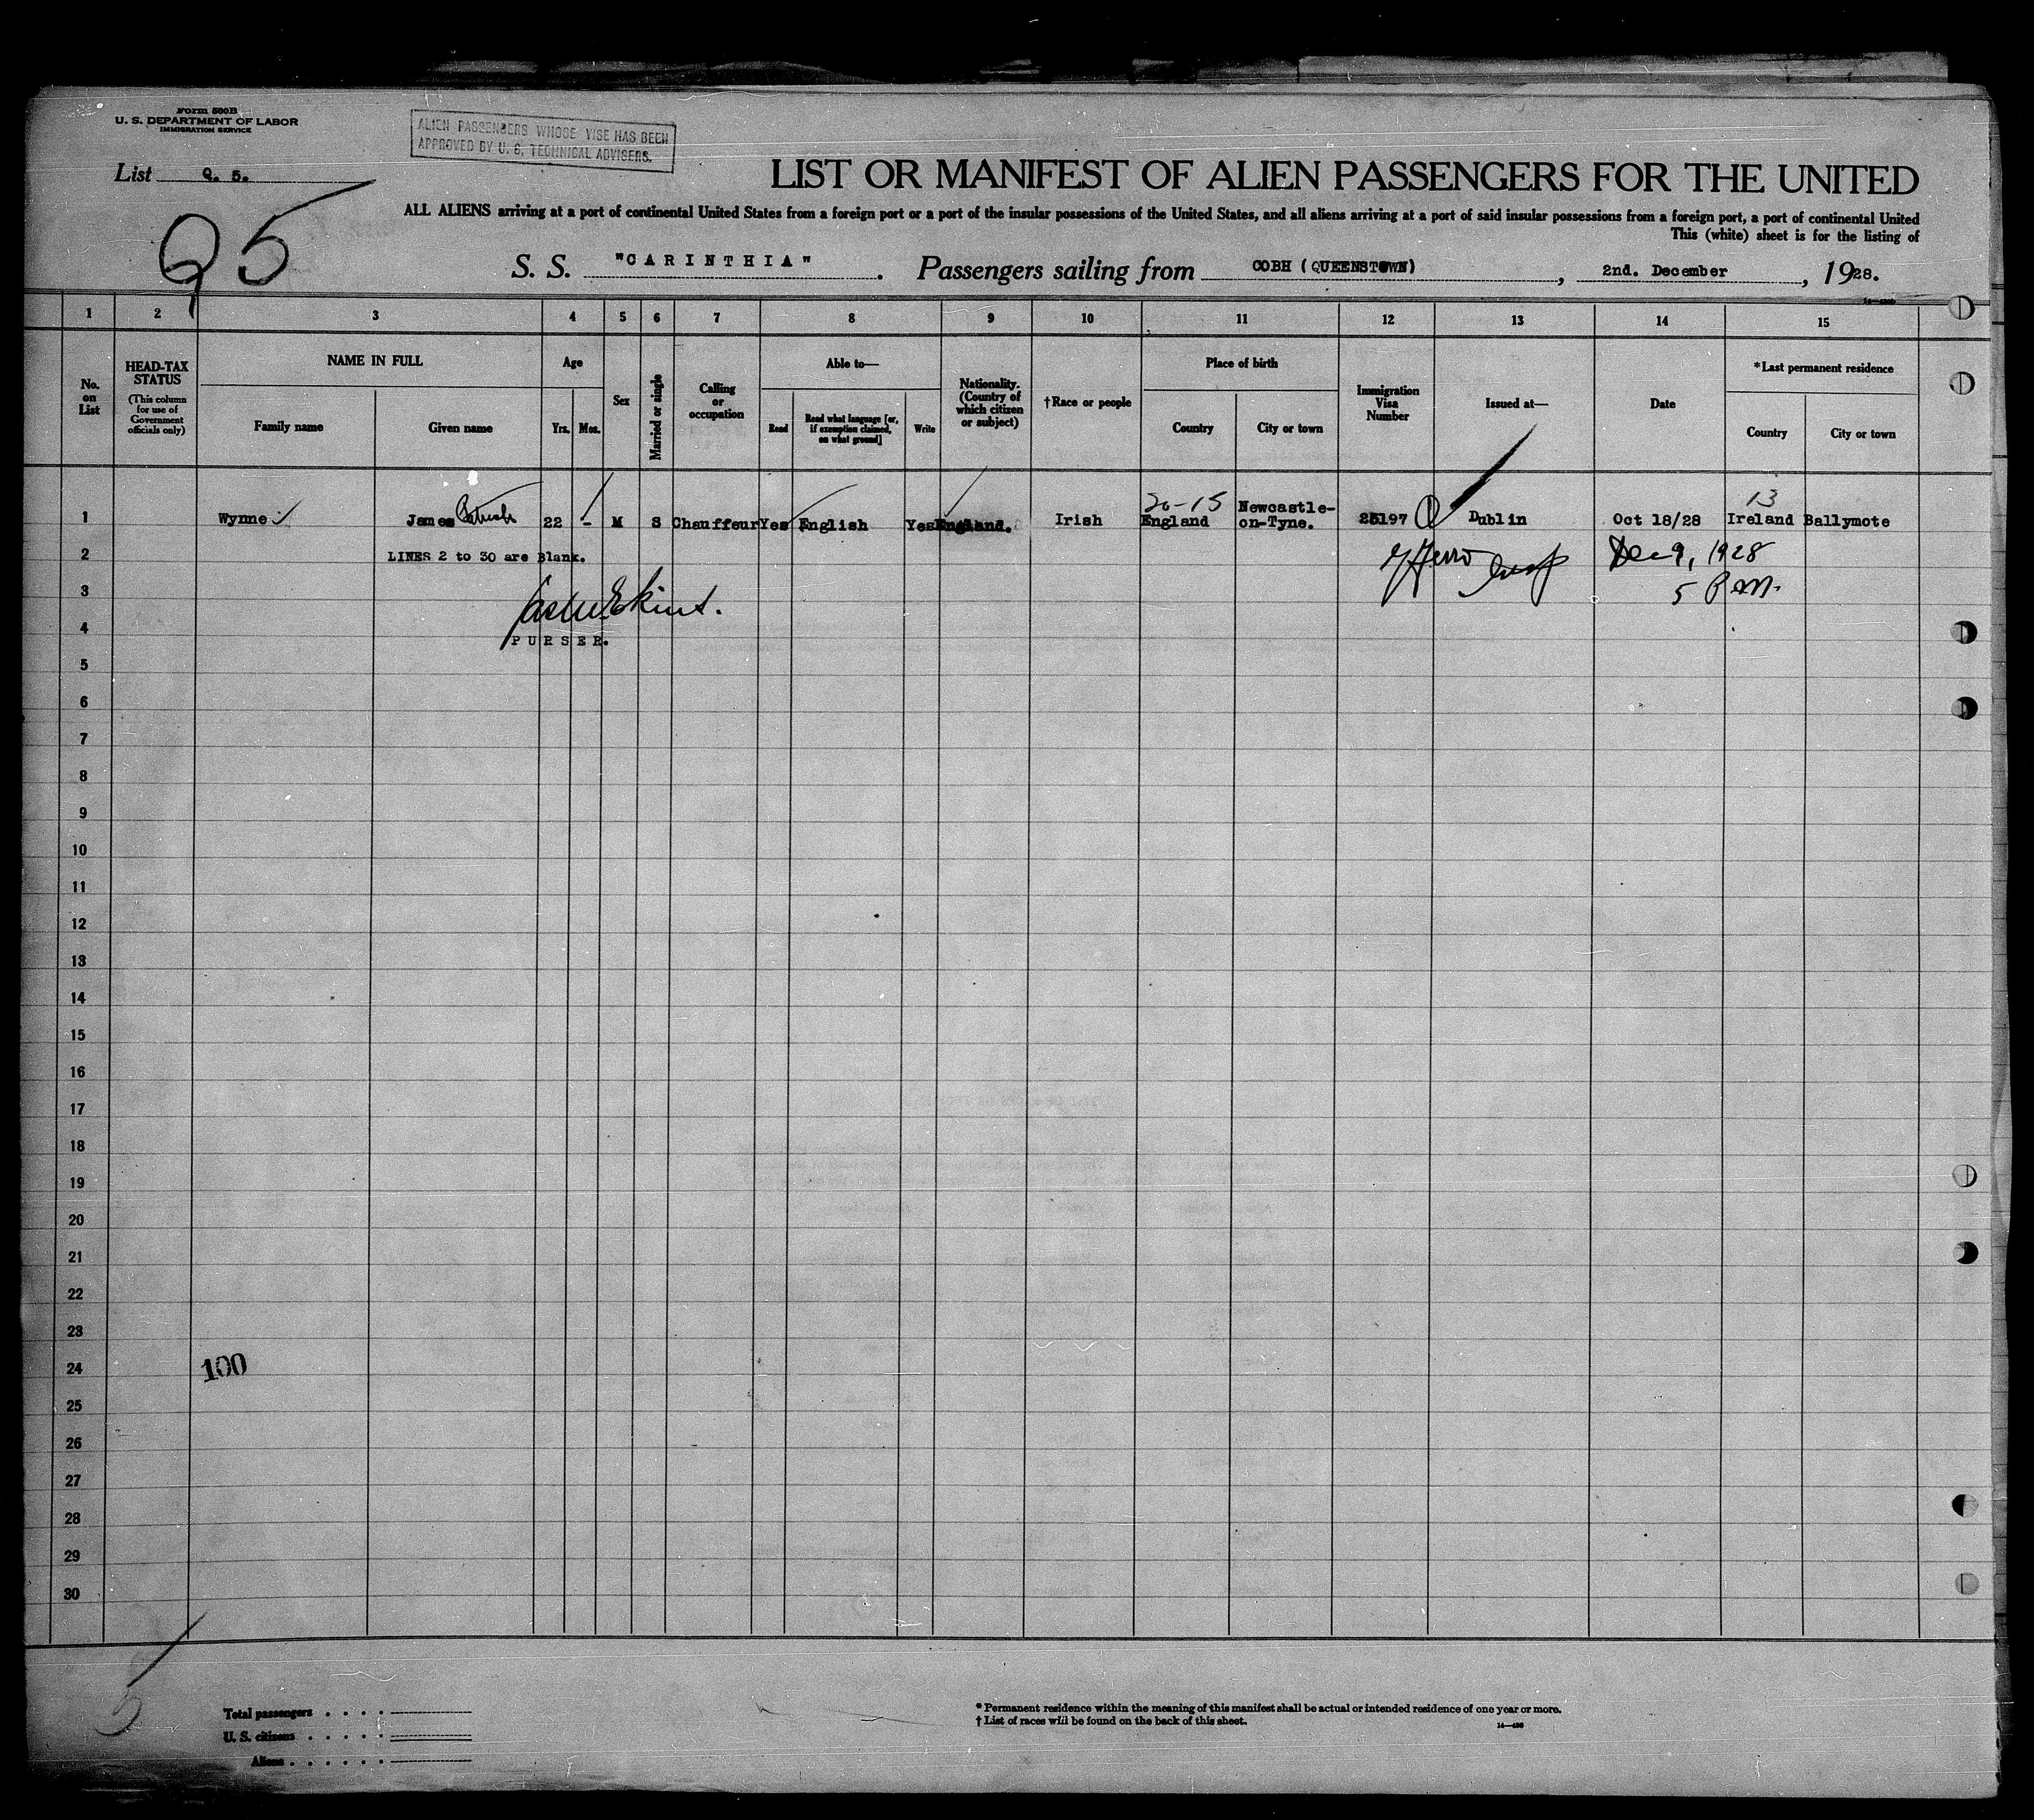 Form 500B
U. S. DEPARTMENT OF LABOR
IMMIGRATION SERVICE
ALIEN PASSENGERS WHOSE VISE HAS BEEN
APPROVED BY U. S. TECHNICAL ADVISERS.
List Q. 5.
Q5
LIST OR MANIFEST OF ALIEN PASSENGERS FOR THE UNITED
ALL ALIENS arriving at a port of continental United States from a foreign port or a port of the insular possessions of the United States, and all aliens arriving at a port of said insular possessions from a foreign port, a port of continental United
This (white) sheet is for the listing of
S. S. "CARINTHIA". Passengers sailing from COBH (QUEENSTOWN), 2nd. December, 1928.
1 2 3 4 5 6 7 8 9 10 11 12 13 14 15
No. on List
HEAD-TAX STATUS
(This column for use of Government officials only)
NAME IN FULL
Family name
Given name
Age
Yrs. Mos.
Sex
Married or single
Calling or occupation
Able to—
Read
Read what language [or, if exemption claimed, on what ground]
Write
Nationality. (Country of which citizen or subject)
†Race or people
Place of birth
Country
City or town
Immigration Visa Number
Issued at—
Date
*Last permanent residence
Country
City or town
20-15 13
1 Wynne James Patrick 22 - M S Chauffeur Yes English Yes England. Irish England Newcastle-on-Tyne. 25197 Dublin Oct 18/28 Ireland Ballymote
2 LINES 2 to 30 are Blank. Dec 9, 1928
3 5 P.M.
4 PURSER.
5
6
7
8
9
10
11
12
13
14
15
16
17
18
19
20
21
22
23
24 100
25
26
27
28
29
30
5
Total passengers . . . .
U. S. citizens . . . . .
Aliens . . . . . .
* Permanent residence within the meaning of this manifest shall be actual or intended residence of one year or more.
† List of races will be found on the back of this sheet.